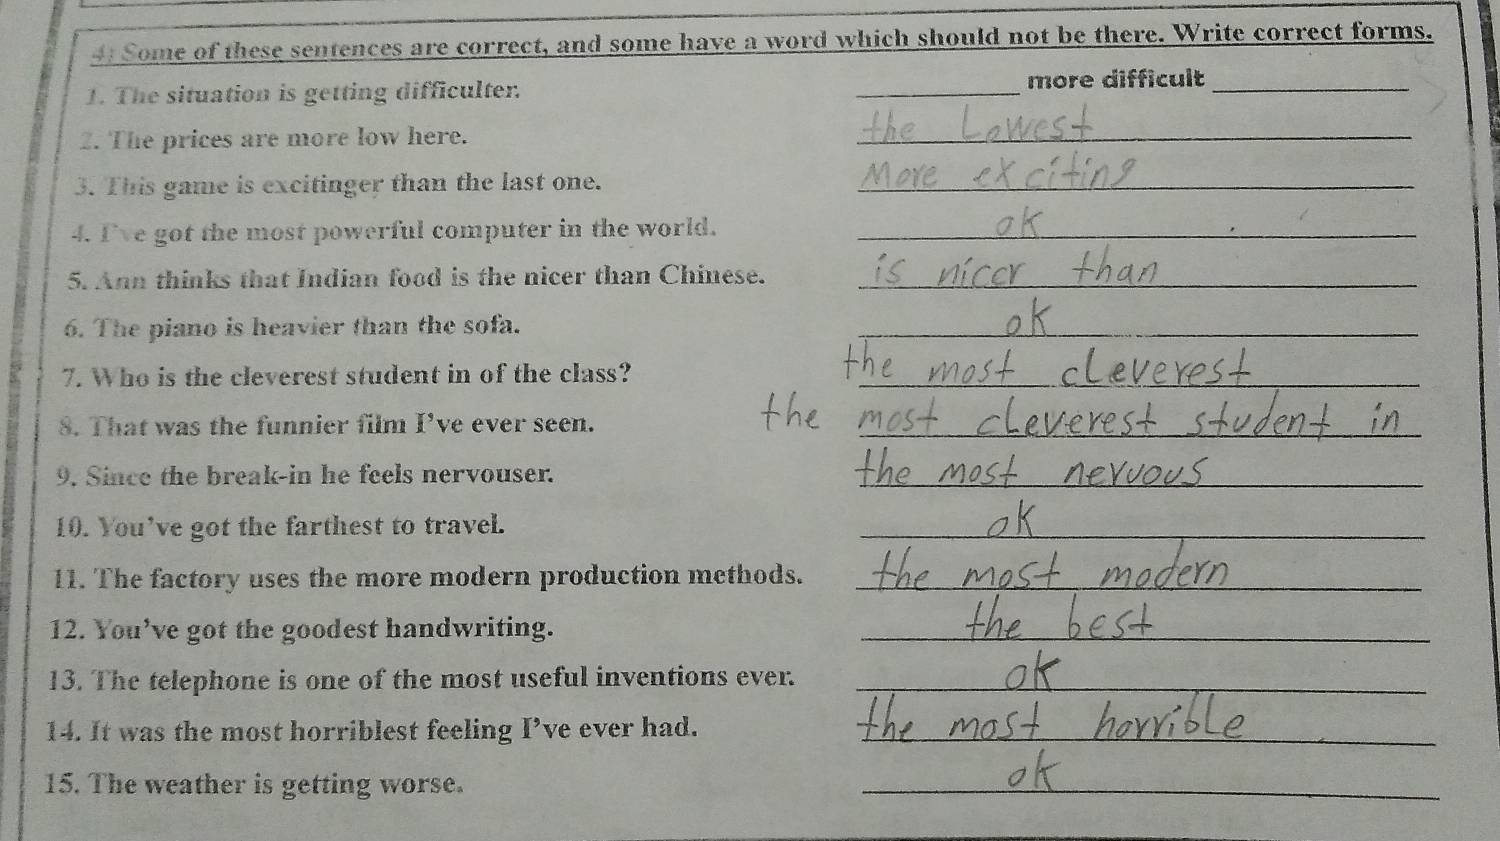 4: Some of these sentences are correct, and some have a word which should not be there. Write correct forms.
1. The situation is getting difficulter. more difficult
2. The prices are more low here. the Lowest
3. This game is excitinger than the last one. More exciting
4. I've got the most powerful computer in the world. ok
5. Ann thinks that Indian food is the nicer than Chinese. is nicer than
6. The piano is heavier than the sofa. ok
7. Who is the cleverest student in of the class? the most cleverest
8. That was the funnier film I've ever seen. the most cleverest student in
9. Since the break-in he feels nervouser. the most nervous
10. You've got the farthest to travel. ok
11. The factory uses the more modern production methods. the most modern
12. You've got the goodest handwriting. the best
13. The telephone is one of the most useful inventions ever. ok
14. It was the most horriblest feeling I've ever had. the most horrible
15. The weather is getting worse. ok